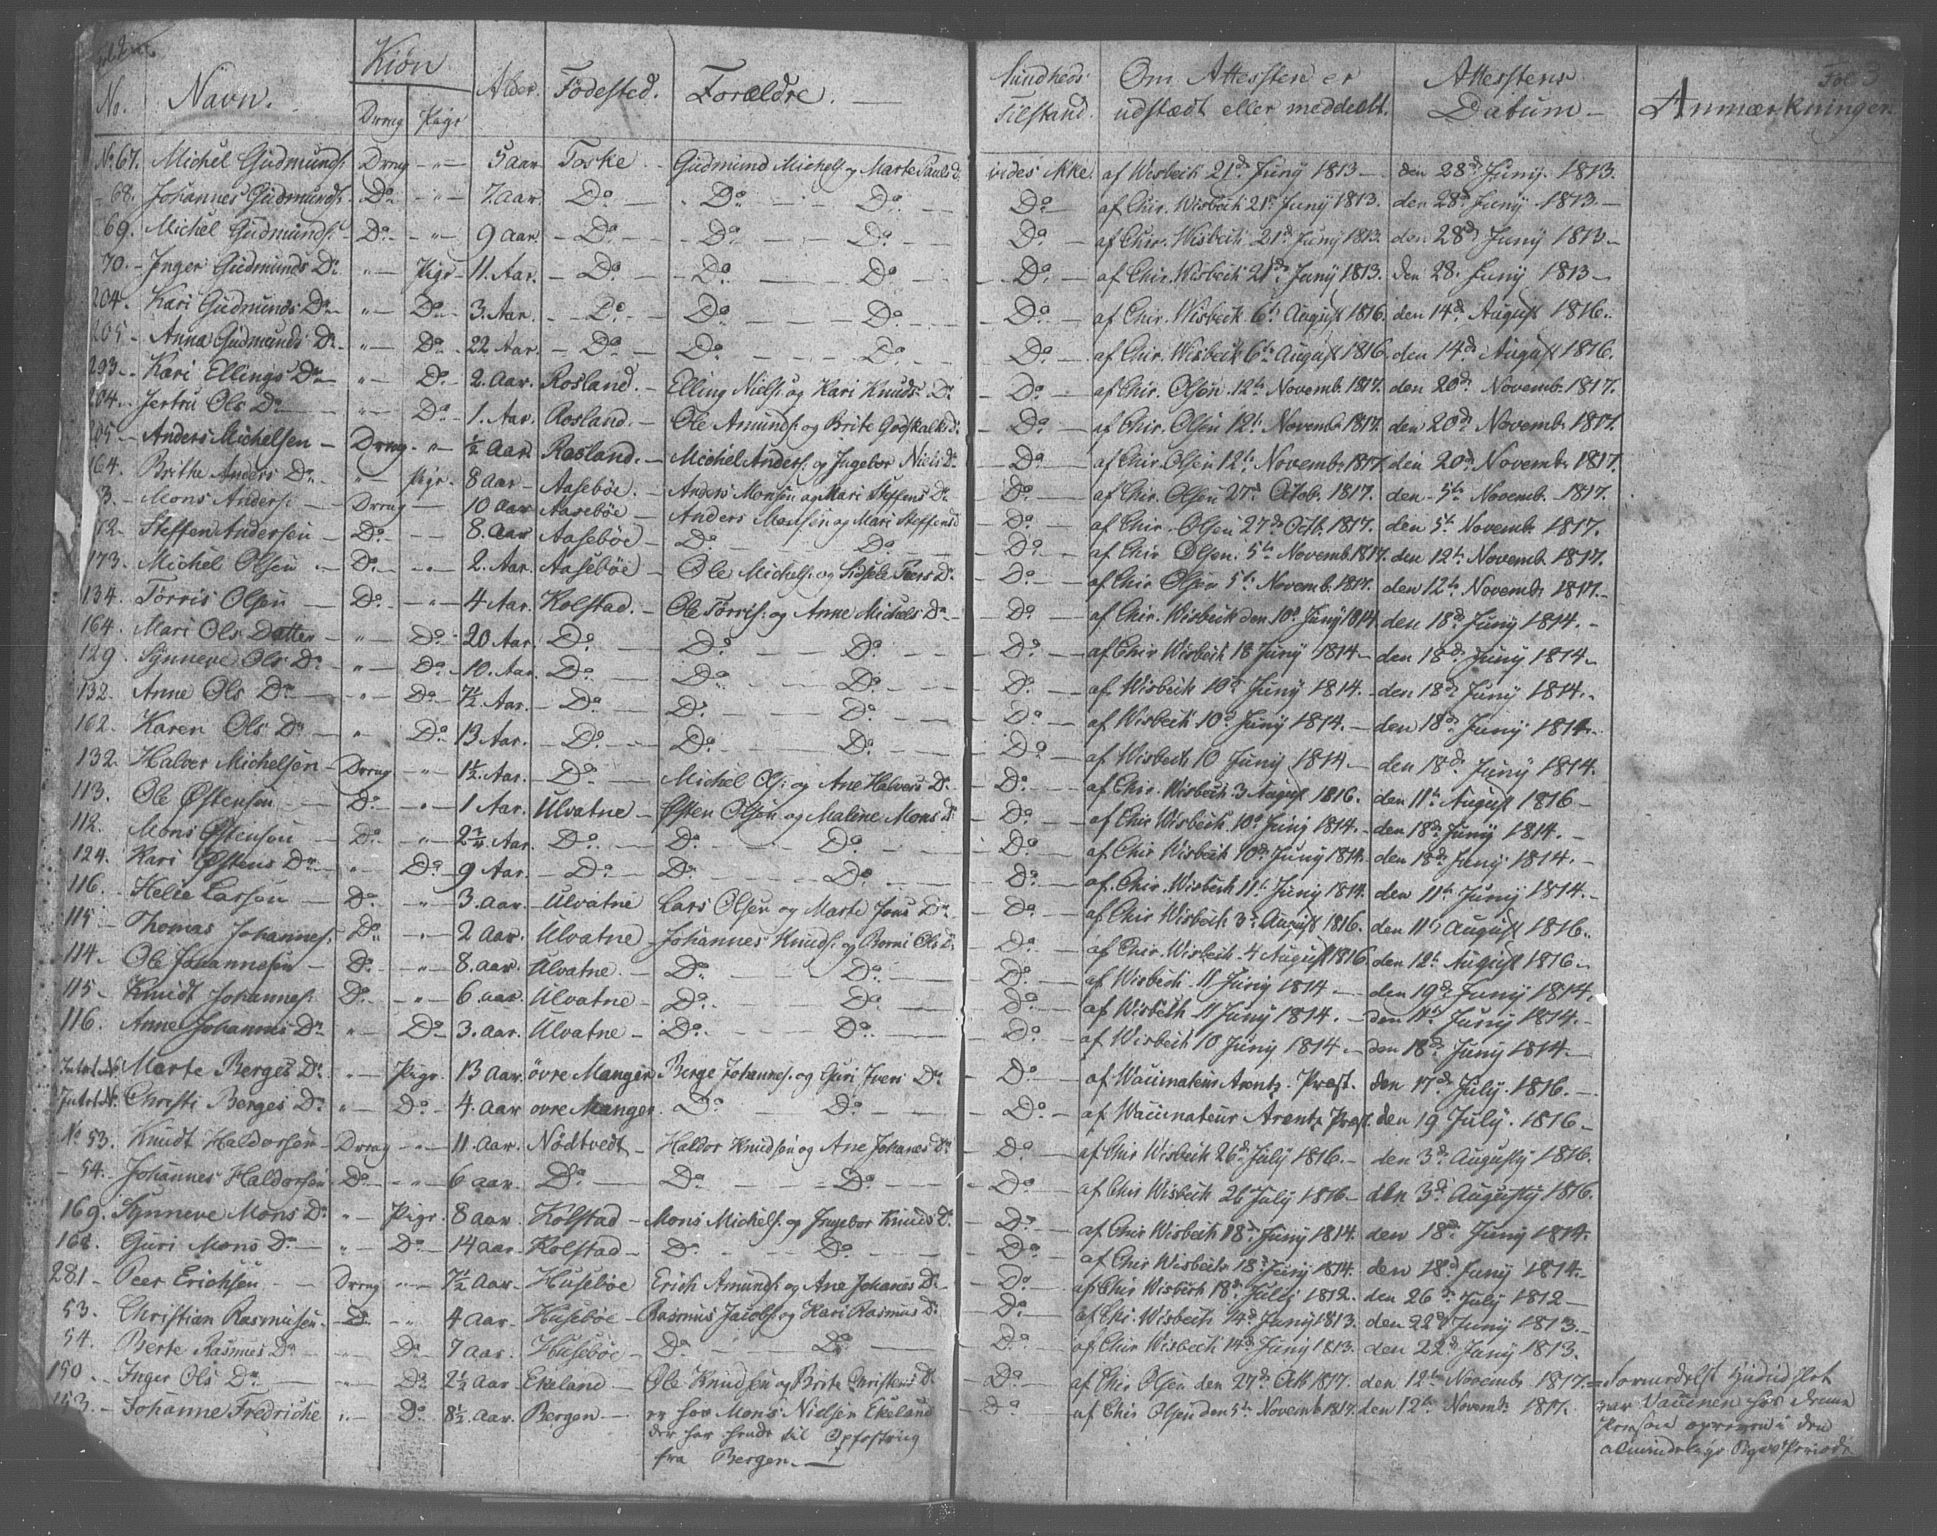 No. Navn. Kiøn Dreng Pige Alder. Fødested. Forældre. Sundheds Tilstand. Om Attesten er udstædt eller meddeelt. Attestens Datum Anmærkninger Fol 3
No 67. Michel Gudmunds: Dreng -"- 5 aar Toske Gudmund Michels: og Marte Pauls d. vides ikke af Wisbech 21de Juny 1813 den 28de Juny 1813.
68. Johannes Gudmunds: Do -"- 7. aar Do Do Do Do af Chir. Wisbech 21de Juny 1813. den 28de Juny 1813
69. Michel Gudmunds: Do -"- 9 aar Do Do Do Do af Chir. Wisbech 21de Juny 1813. den 28de Juny 1813
70. Inger Gudmunds Dr. -"- Pige 11. Aar. Do Do Do Do af Chir. Wisbech 21de Juny 1813. den 28. Juny 1813
204. Kari Gudmunds Dr. -"- Do 3. Aar. Do Do Do Do af Chir. Wisbech 6te August 1816. den 14de August 1816.
205 Anna Gudmunds Dr. -"- Do 22 Aar. Do Do Do Do af Chir. Wisbech 6te August 1816 den 14de August 1816.
293 Kari Ellings Dr. -"- Do 2. Aar. Rosland. Elling Niels: og Kari Knuds Dr. Do af Chir. Olsen 12te Novemb. 1817. den 20de Novemb. 1817.
204. Jertru Ols Dr. -"- Do 1. Aar. Rosland. Ole Amunds: og Brite Godskalks d. Do af Chir. Olsen 12te Novemb 1817. den 20de Novemb. 1817.
205 Anders Michelsen Dreng -"- ½ Aar Rosland. Michel Anders: og Ingebor Niels Dr. Do af Chir. Olsen 12te Novemb 1817. den 20de Novemb. 1817.
164. Brithe Anders Dr. -"- Pige. 8 aar Aasebøe. Anders Monsen og Mari Steffens Dr. Do af Chir. Olsen 27de Octob. 1817. den 5te Novemb. 1817.
3. Mons Anders: Dreng 10 aar Aasebøe Anders Monsen og Mari Steffens d Do af Chir. Olsen 27de Octb. 1817. den 5te Novemb. 1817.
72. Steffen Andersen Do 8. aar Aasebøe Do Do Do af Chir Olsen. 5te Novemb. 1817. den 12te Novemb. 1817.
173. Michel Olsen Do -"- 2. Aar. Aasebøe Ole Michels: og Sidsele Peers Dr. Do af Chir. Olsen 5te Novemb. 1817. den 12te Novemb. 1817.
134. Torris Olsen Do -"- 4 Aar. Kolstad. Ole Torris: og Anne Michels Dr. Do af Chir. Wisbech den 10de Juny 1814 den 18de Juny 1814.
164. Mari Ols Datter -"- Do 20 Aar. Do Do Do Do af Chir Wisbech 18 Juny 1814 den 18de Juny 1814
129 Synneve Ols Dr. -"- Do 10. Aar. Do Do Do Do af Wisbech 10de Juny 1814. den 18de Juny 1814.
132. Anne Ols Dr. -"- Do 7½ Aar. Do Do Do Do af Wisbech 10de Juny 1814. den 18de Juny 1814.
162. Karen Ols Dr. " Do 13 Aar. Do Do Do Do af Wisbech 10 Juny 1814. den 18de Juny 1814.
132. Halver Michelsen Dreng -"- 1½. Aar. Do Michel Ols: og Ane Halvers Dr. Do af Chir. Wisbech 3 August 1816. den 11te August 1816
113. Ole Østensen Do -"- 1 Aar. Ulvatne Østen Olsen og Malene Mons Dr. Do af Chir Wisbech. 10de Juny 1814. den 18de Juny 1814.
112. Mons Østensen Do -"- Aar. Do Do Do Do af Chir Wisbech 10de Juny 1814. den 18de Juny 1814.
124. Kari Østens Dr. " Do 9 Aar. Do Do Do Do af. Chir. Wisbech 11te Juny 1814. den 11te Juny 1814.
116. Helie Larsen Do " 3. aar. Ulvatne Lars Olsen og Marte Jons Dr. Do af Chir Wisbech. 3de August 1816. den 11te August 1816.
115 Thomas Johannes: Do -"- 2 aar. Ulvatne Johannes Knuds: og Borni Ols d. Do af Chir. Wisbech. 4 August 1816. den 12te August 1816.
114. Ole Johannesen Do. -"- 8. aar Ulvatne. Do Do Do af Wisbech 11 Juny 1814 den 19de Juny 1814.
115 Knudt Johannes: Do -"- 6 aar. Ulvatne Do Do Do af Wisbech 11 Juny 1814. den 11te Juny 1814.
116. Anne Johannes Dr. " Do 3. aar. Ulvatne Do Do Do af Wisbech 10 Juny 1814. den 18de Juny 1814
Marte Berges Dr. " Pige. 13 aar. øvre Manger Berge Johannes: og Guri Ivers Dr. Do af Waccinateur Arentz. Præst. den 17de July. 1816.
Christi Berges Dr. " Do 4. aar øvre Manger Do Do Do af Waccinateur Arentz Præst. den 19 July. 1816
No 53. Knudt Haldorsen Dreng -"- 11. aar. Nödtvedt Haldor Knudsen og Ane Johanes Dr. Do af Chir Wisbech 26de July 1816. den 3de Augusty 1816.
54. Johannes Haldorsen Do " 6 aar. Do Do Do Do af Chir Wisbech. 26 July 1816 den 3de Augusty 1816.
169. Synneve Mons Dr. " Pige. 8 aar. Kolstad Mons Michels: og Ingebor Knuds Dr. Do af. Chir Wisbech 18de Juny 1814. den 18de Juny 1814.
168. Guri Mons Dr. " Do 14 aar. Kolstad Do Do Do af Chir Wisbech 18de Juny 1814. den 18de Juny 1814.
281 Peer Erichsen Dreng -"- 7½ aar. Husebøe Erich Amunds: og Ane Johanes Dr. Do af Chir Wisbech 18de July 1812. den 26de July 1812
53. Christian Rasmusen Do " 4 aar. Husebøe Rasmus Jacobs: og Kari Rasmus Dr. Do af Chi. Wisbech 14de Juny 1813. den 22de Juny 1813.
54. Berte Rasmus Dr. -"- Do 7 aar. Husebøe Do Do Do af Chir Wisbech 14de Juny 1813. den 22de Juny 1813.
150. Inger Ols Dr. -"- Do 2½ aar Ekeland Ole Knudsen og Brite Christens Dr. Do af Chir Olsen den 27de Oct 1817. den 12te Novemb 1817.
153. Johanne Fredriche " Do 8½. aar. Bergen er hos Mons Nielsen Ekeland Do af Chir Olsen den 5te Novemb 1817. den 12te Novemb. 1817.
der har hende til Opfostring
fra Bergen.
var Vaccinen hos denne
Person i den
almindelige Periode